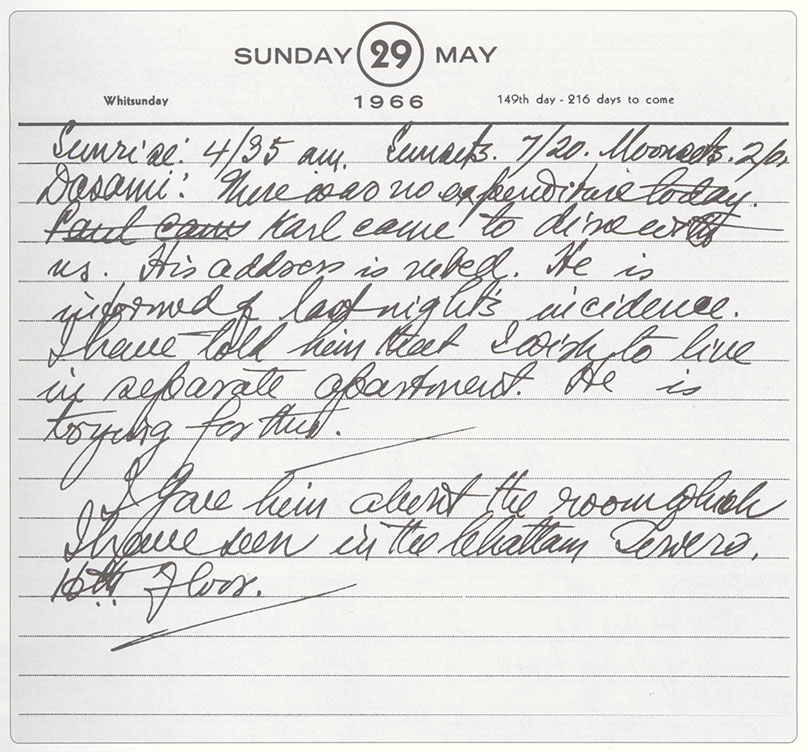 SUNDAY 29 MAY
Whitsunday 1966 149th day - 216 days to come
Sunrise: 4/35 am. Sunsets. 7/20. Moonsets. 2/0
Dasami: There was no expenditure today.
Paul came Karl came to dine with
us. His address is noted. He is
informed of last night's incidence.
I have told him that I wish to live
in separate apartment. He is
trying for this.
I gave him about the room which
I have seen in the Chattam Towers,
16th Floor.